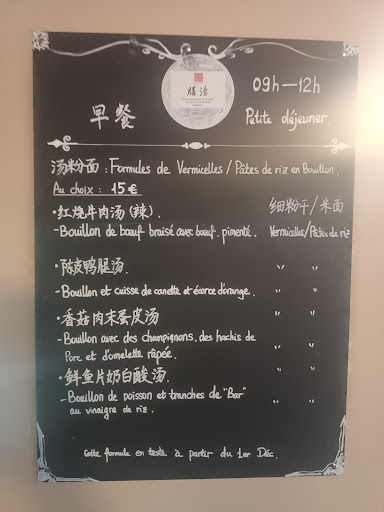 膳
09h—12h
早餐
Petite déjeuner.
汤粉面 : Formules de Vermicelles / Pâtes de riz en Bouillon.
Au choix : 15€
·红烧牛肉汤 (辣). 细粉干/米面
-Bouillon de bœuf braisé avec bœuf. pimenté. Vermicelles/Pâtes de riz
·陈皮鸭腿汤. " "
-Bouillon et cuisse de canette et écorce d'orange. " "
·香菇肉末蛋皮汤
-Bouillon avec des champignons, des hachis de " "
Porc et d'omelette râpée.
·鲜鱼片奶白酸汤. " "
-Bouillon de poisson et tranches de "Bar" " "
au vinaigre de riz.
Cette formule en teste à partir du 1er Déc.